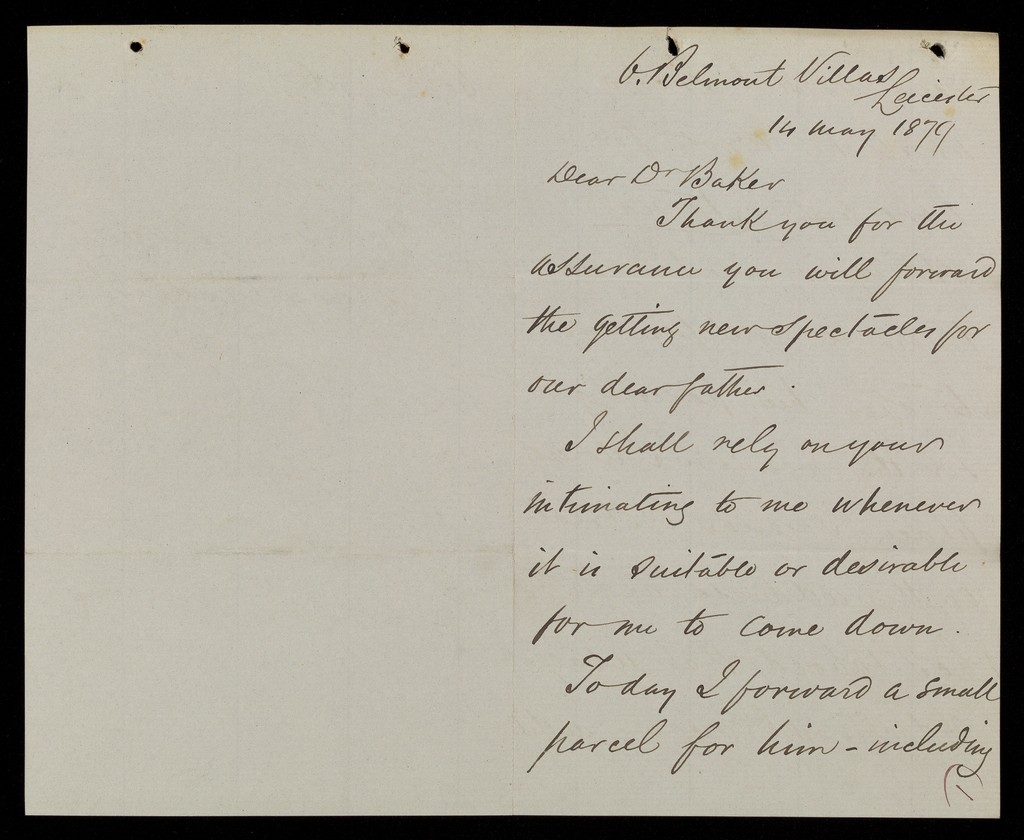 6. Belmont Villas
Leicester
14 May 1879
Dear Dr Baker
Thank you for the
assurance you will forward
the getting new spectacles for
our dear father.
I shall rely on your
intimating to me whenever
it is suitable or desirable
for me to come down.
Today I forward a small
parcel for him - including